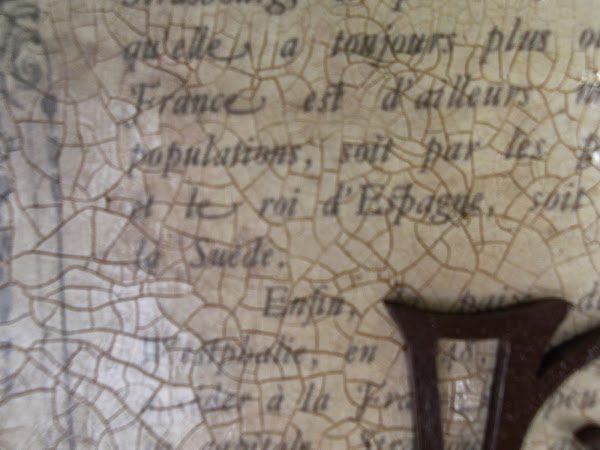 qu'elle a toujours plus ou
France est d'ailleurs
populations, soit par les
et le roi d'Espagne, soit
la Suède.
Enfin, la paix de
Westphalie, en
à la
capitale